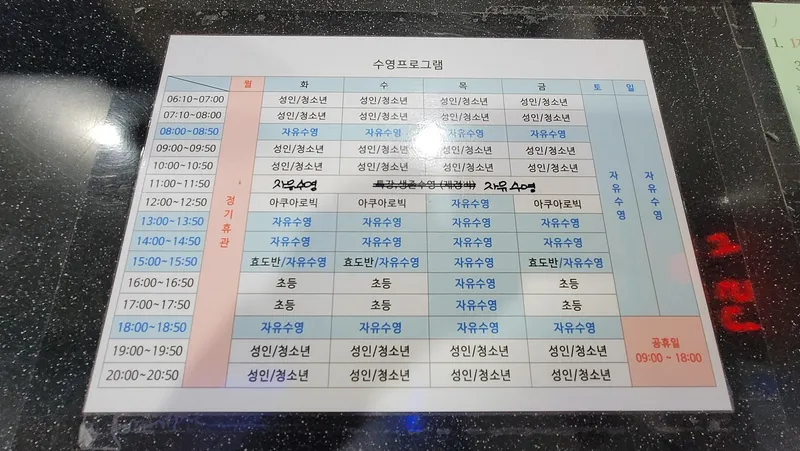 수영프로그램
월 화 수 목 금 토 일
06:10~07:00 성인/청소년 성인/청소년 성인/청소년 성인/청소년
07:10~08:00 성인/청소년 성인/청소년 성인/청소년 성인/청소년
08:00~08:50 자유수영 자유수영 자유수영 자유수영
09:00~09:50 성인/청소년 성인/청소년 성인/청소년 성인/청소년
10:00~10:50 성인/청소년 성인/청소년 성인/청소년 성인/청소년
11:00~11:50 자유수영 특강,생존수영 자유수영
12:00~12:50 아쿠아로빅 아쿠아로빅 자유수영 아쿠아로빅
13:00~13:50 자유수영 자유수영 자유수영 자유수영
14:00~14:50 자유수영 자유수영 자유수영 자유수영
15:00~15:50 효도반/자유수영 효도반/자유수영 자유수영 효도반/자유수영
16:00~16:50 초등 초등 자유수영 초등
17:00~17:50 초등 초등 자유수영 초등
18:00~18:50 자유수영 자유수영 자유수영 자유수영
19:00~19:50 성인/청소년 성인/청소년 성인/청소년 성인/청소년
20:00~20:50 성인/청소년 성인/청소년 성인/청소년 성인/청소년
정기휴관
자유수영
자유수영
공휴일
09:00 ~ 18:00